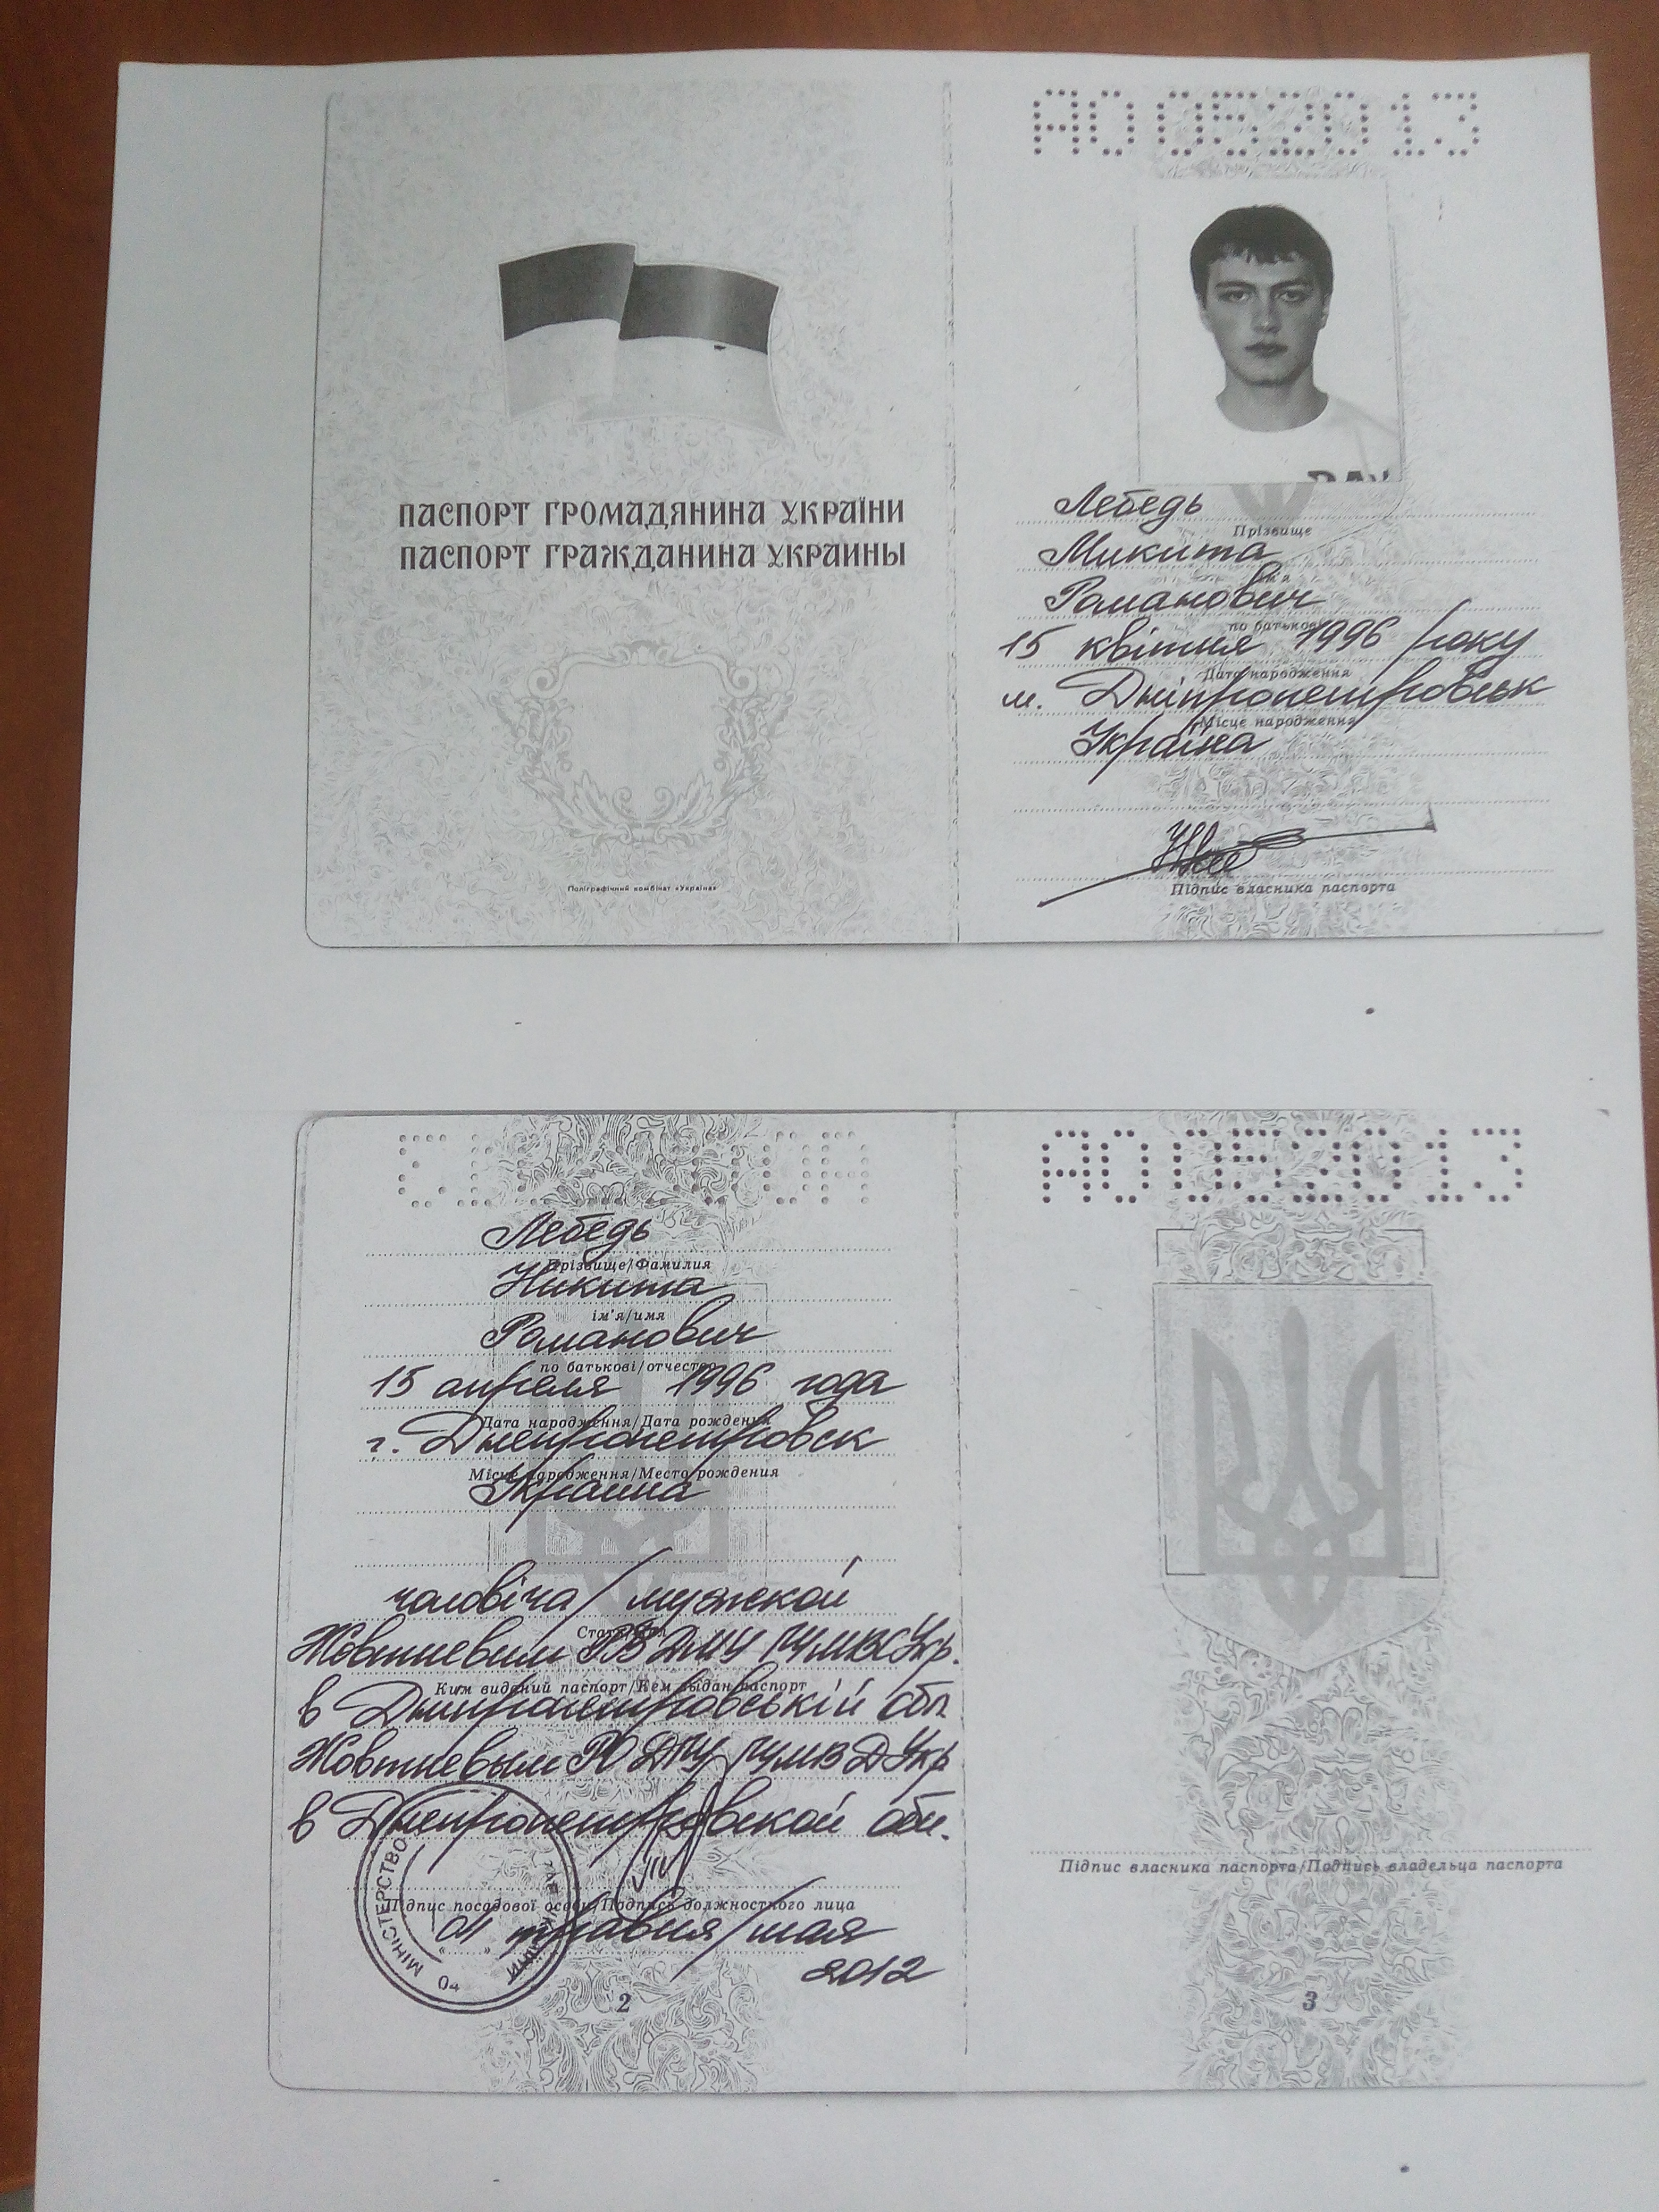 АО052013
ПАСПОРТ ГРОМАДЯНИНА УКРАЇНИ
ПАСПОРТ ГРАЖДАНИНА УКРАИНЫ
Поліграфічний комбінат «Україна»
Лебедь
Прізвище
Микита
ім'я
Романович
по батькові
15 квітня 1996 року
Дата народження
м. Дніпропетровськ
Місце народження
Україна
Підпис власника паспорта
Лебедь
Прізвище/Фамилия
Никита
ім'я/имя
Романович
по батькові/отчество
15 апреля 1996 года
Дата народження/Дата рождения
г. Днепропетровск
Місце народження/Место рождения
Украина
чоловіча/мужской
Стать/Пол
Жовтневим РВ ДМУ ГУМВС Укр.
Ким виданий паспорт/Кем выдан паспорт
в Дніпропетровській обл.
Жовтневым РО ДГУ ГУМВД Укр
в Днепропетровской обл.
Підпис посадової особи/Подпись должностного лица
01 травня/мая
2012
МІНІСТЕРСТВО
2
АО052013
Підпис власника паспорта/Подпись владельца паспорта
3